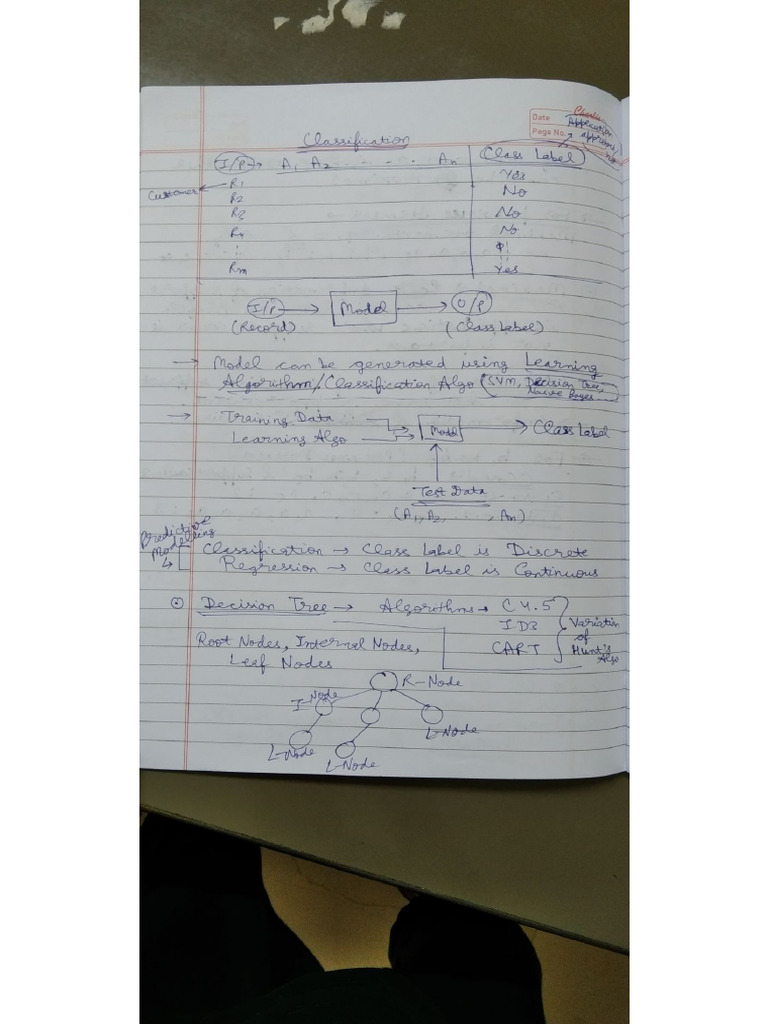 Date
Page No.
Application
approved
Classification
I/P → A1 A2 - - - . An Class Label
Customer ← R1 Yes
R2 No
R3 No
R4 No
Rm Yes
I/P → Model → O/P
(Record) (Class Label)
→ Model can be generated using Learning
Algorithm/Classification Algo (SVM, Decision Tree,
Naive Bayes
→ Training Data
Learning Algo → Model → Class Label
Test Data
(A1, A2, . . . . . , An)
Predictive
Modelling
Classification → Class Label is Discrete
Regression → Class Label is Continuous
Decision Tree → Algorithms → C4.5
ID3
CART
Variation
of
Hunt's
Algo
Root Nodes, Internal Nodes,
Leaf Nodes
R-Node
I-Node
L-Node
L-Node
L-Node